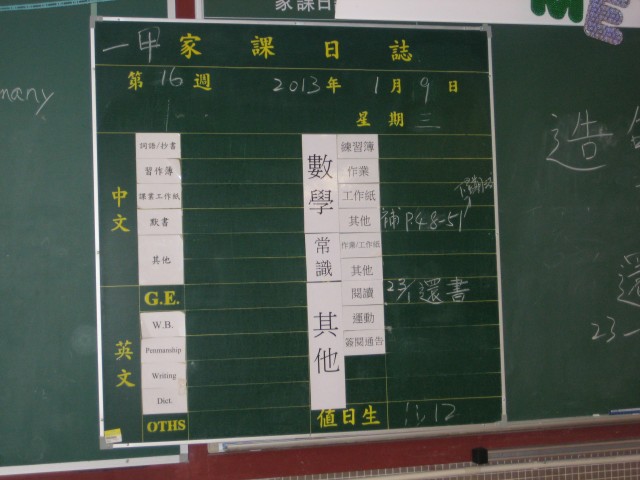 家課日
ME
many
一甲家課日誌
第16週 2013年1月9日
星期三
中文
詞語/抄書
習作簿
課業工作紙
默書
其他
英文
G.E.
W.B.
Penmanship
Writing
Dict.
OTHS
數學
練習簿
作業
工作紙
其他 補 P.48-51
常識
作業/工作紙
其他
其他
閱讀 23/1 還書
運動
簽閱通告
值日生 11, 12
造
還
23